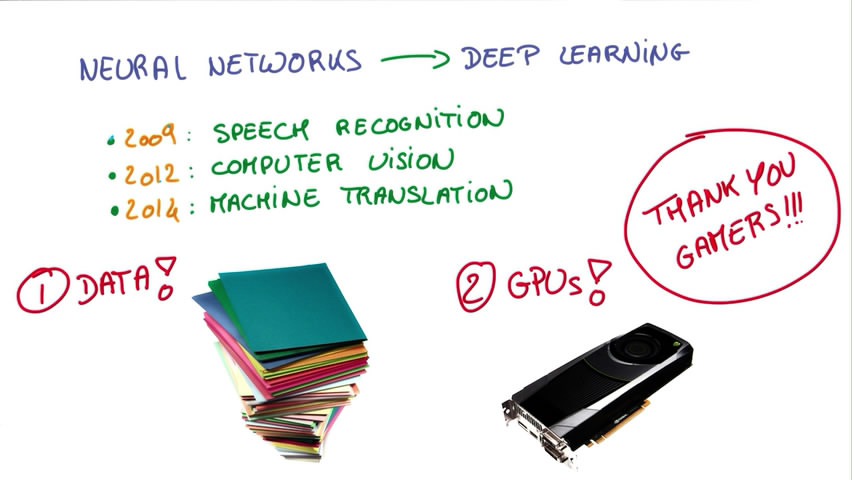 NEURAL NETWORKS → DEEP LEARNING
• 2009: SPEECH RECOGNITION
• 2012: COMPUTER VISION
• 2014: MACHINE TRANSLATION
THANK YOU
GAMERS!!!
1 DATA!
2 GPUs!